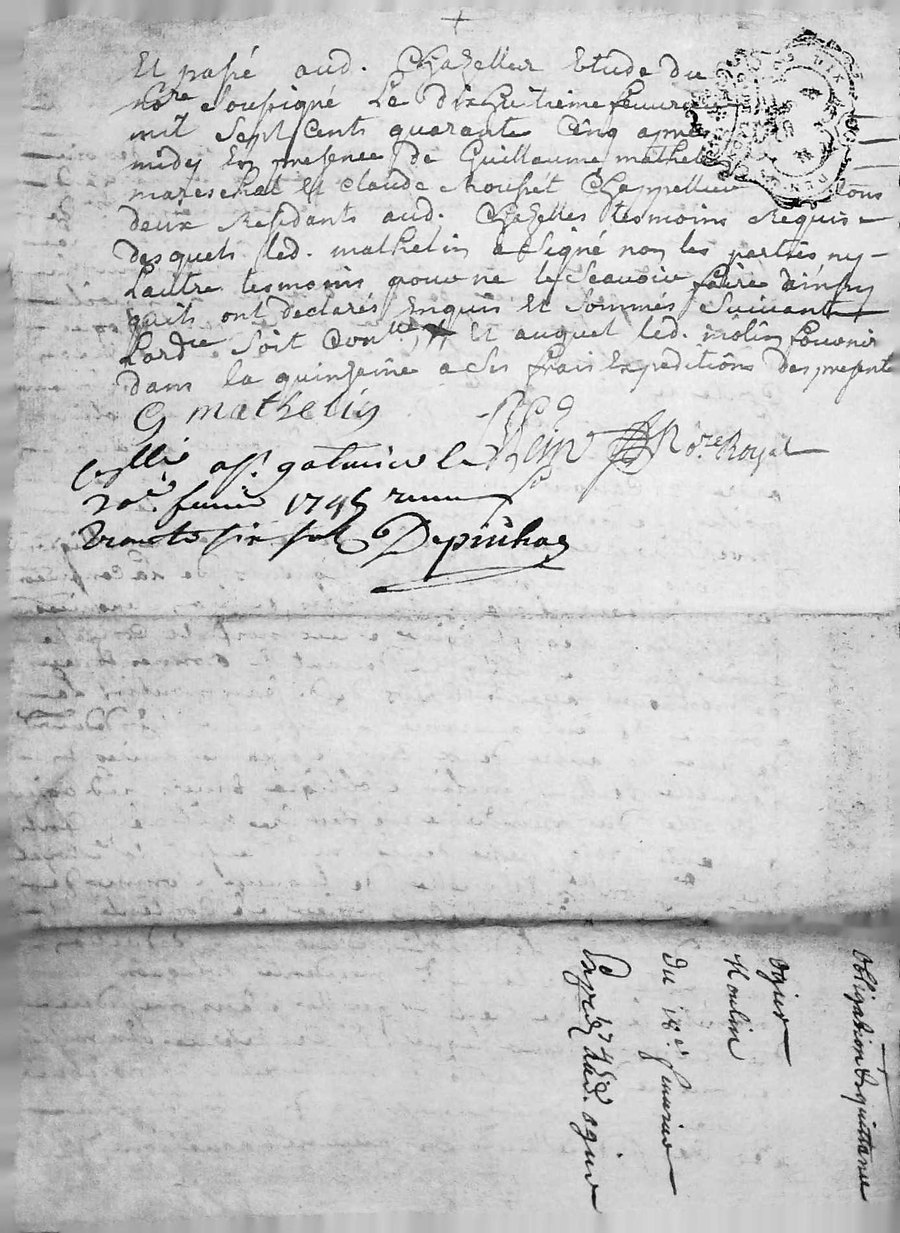 Et passé aud. Chazelles Etude du
nore soussigné Le dixhuitieme feuvrier
mil sept cents quarante Cinq apres
midy En presence de Guillaume mathelin
mareschal et Claude Mousset Chappellier tous
deux Residants aud. Chazelles tesmoins Requis
desquels led. mathelin a signé non les parties ny
Lautre tesmoins pour ne le scavoir faire dainsy
quils ont declarés Enquis Et sommés suivant
Lardce soit Conllé, Et auquel led. molin fournir
dans la quinzaine a ses frais Expeditions des presente
G mathelin
nore Royal
Conllé a st galmier le
20e. feuvrier 1745 receu
trente six sols Depinhac
obligation & quittance
ogier
Moulin
du 18e. feuvrier
1745
led. ogier